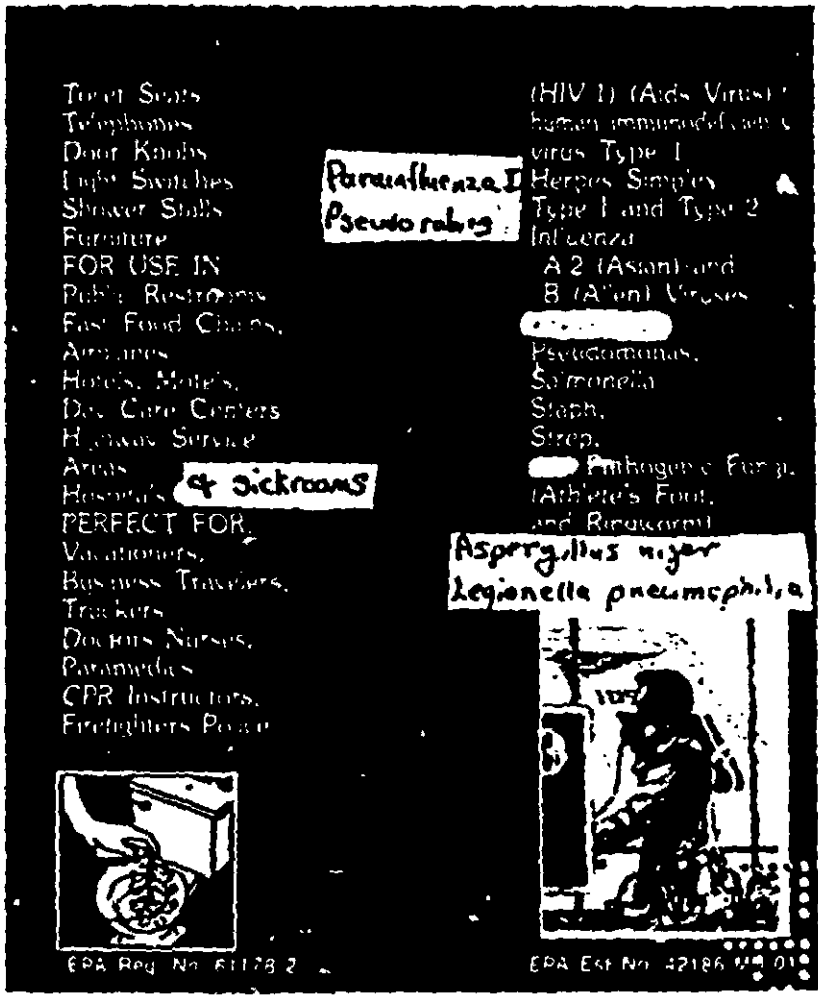 Toilet Seats
Telephones
Door Knobs
Light Switches
Shower Stalls
Furniture
FOR USE IN
Public Restrooms
Fast Food Chains,
Airplanes
Hotels, Motels,
Day Care Centers
Highway Service
Areas
Hospitals & sickrooms
PERFECT FOR,
Vacationers,
Business Travelers,
Truckers
Doctors Nurses,
Paramedics
CPR Instructors,
Firefighters Police
EPA Reg. No. 61178-2
Parainfluenza I
Pseudorabies
(HIV 1) (Aids Virus)
human immunodeficiency
virus Type I
Herpes Simplex
Type 1 and Type 2
Influenza
A 2 (Asian) and
B (Allen) Viruses
Pseudomonas,
Salmonella
Staph,
Strep,
Pathogenic Fungi,
(Athlete's Foot,
and Ringworm)
Aspergillus niger
Legionella pneumophilia
EPA Est No 42186
01